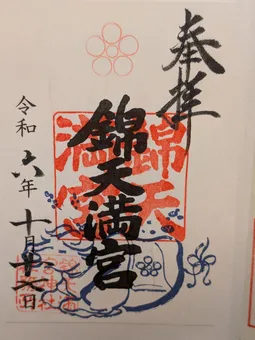 奉拝
錦天満宮
錦天
満宮
令和六年
十月
日